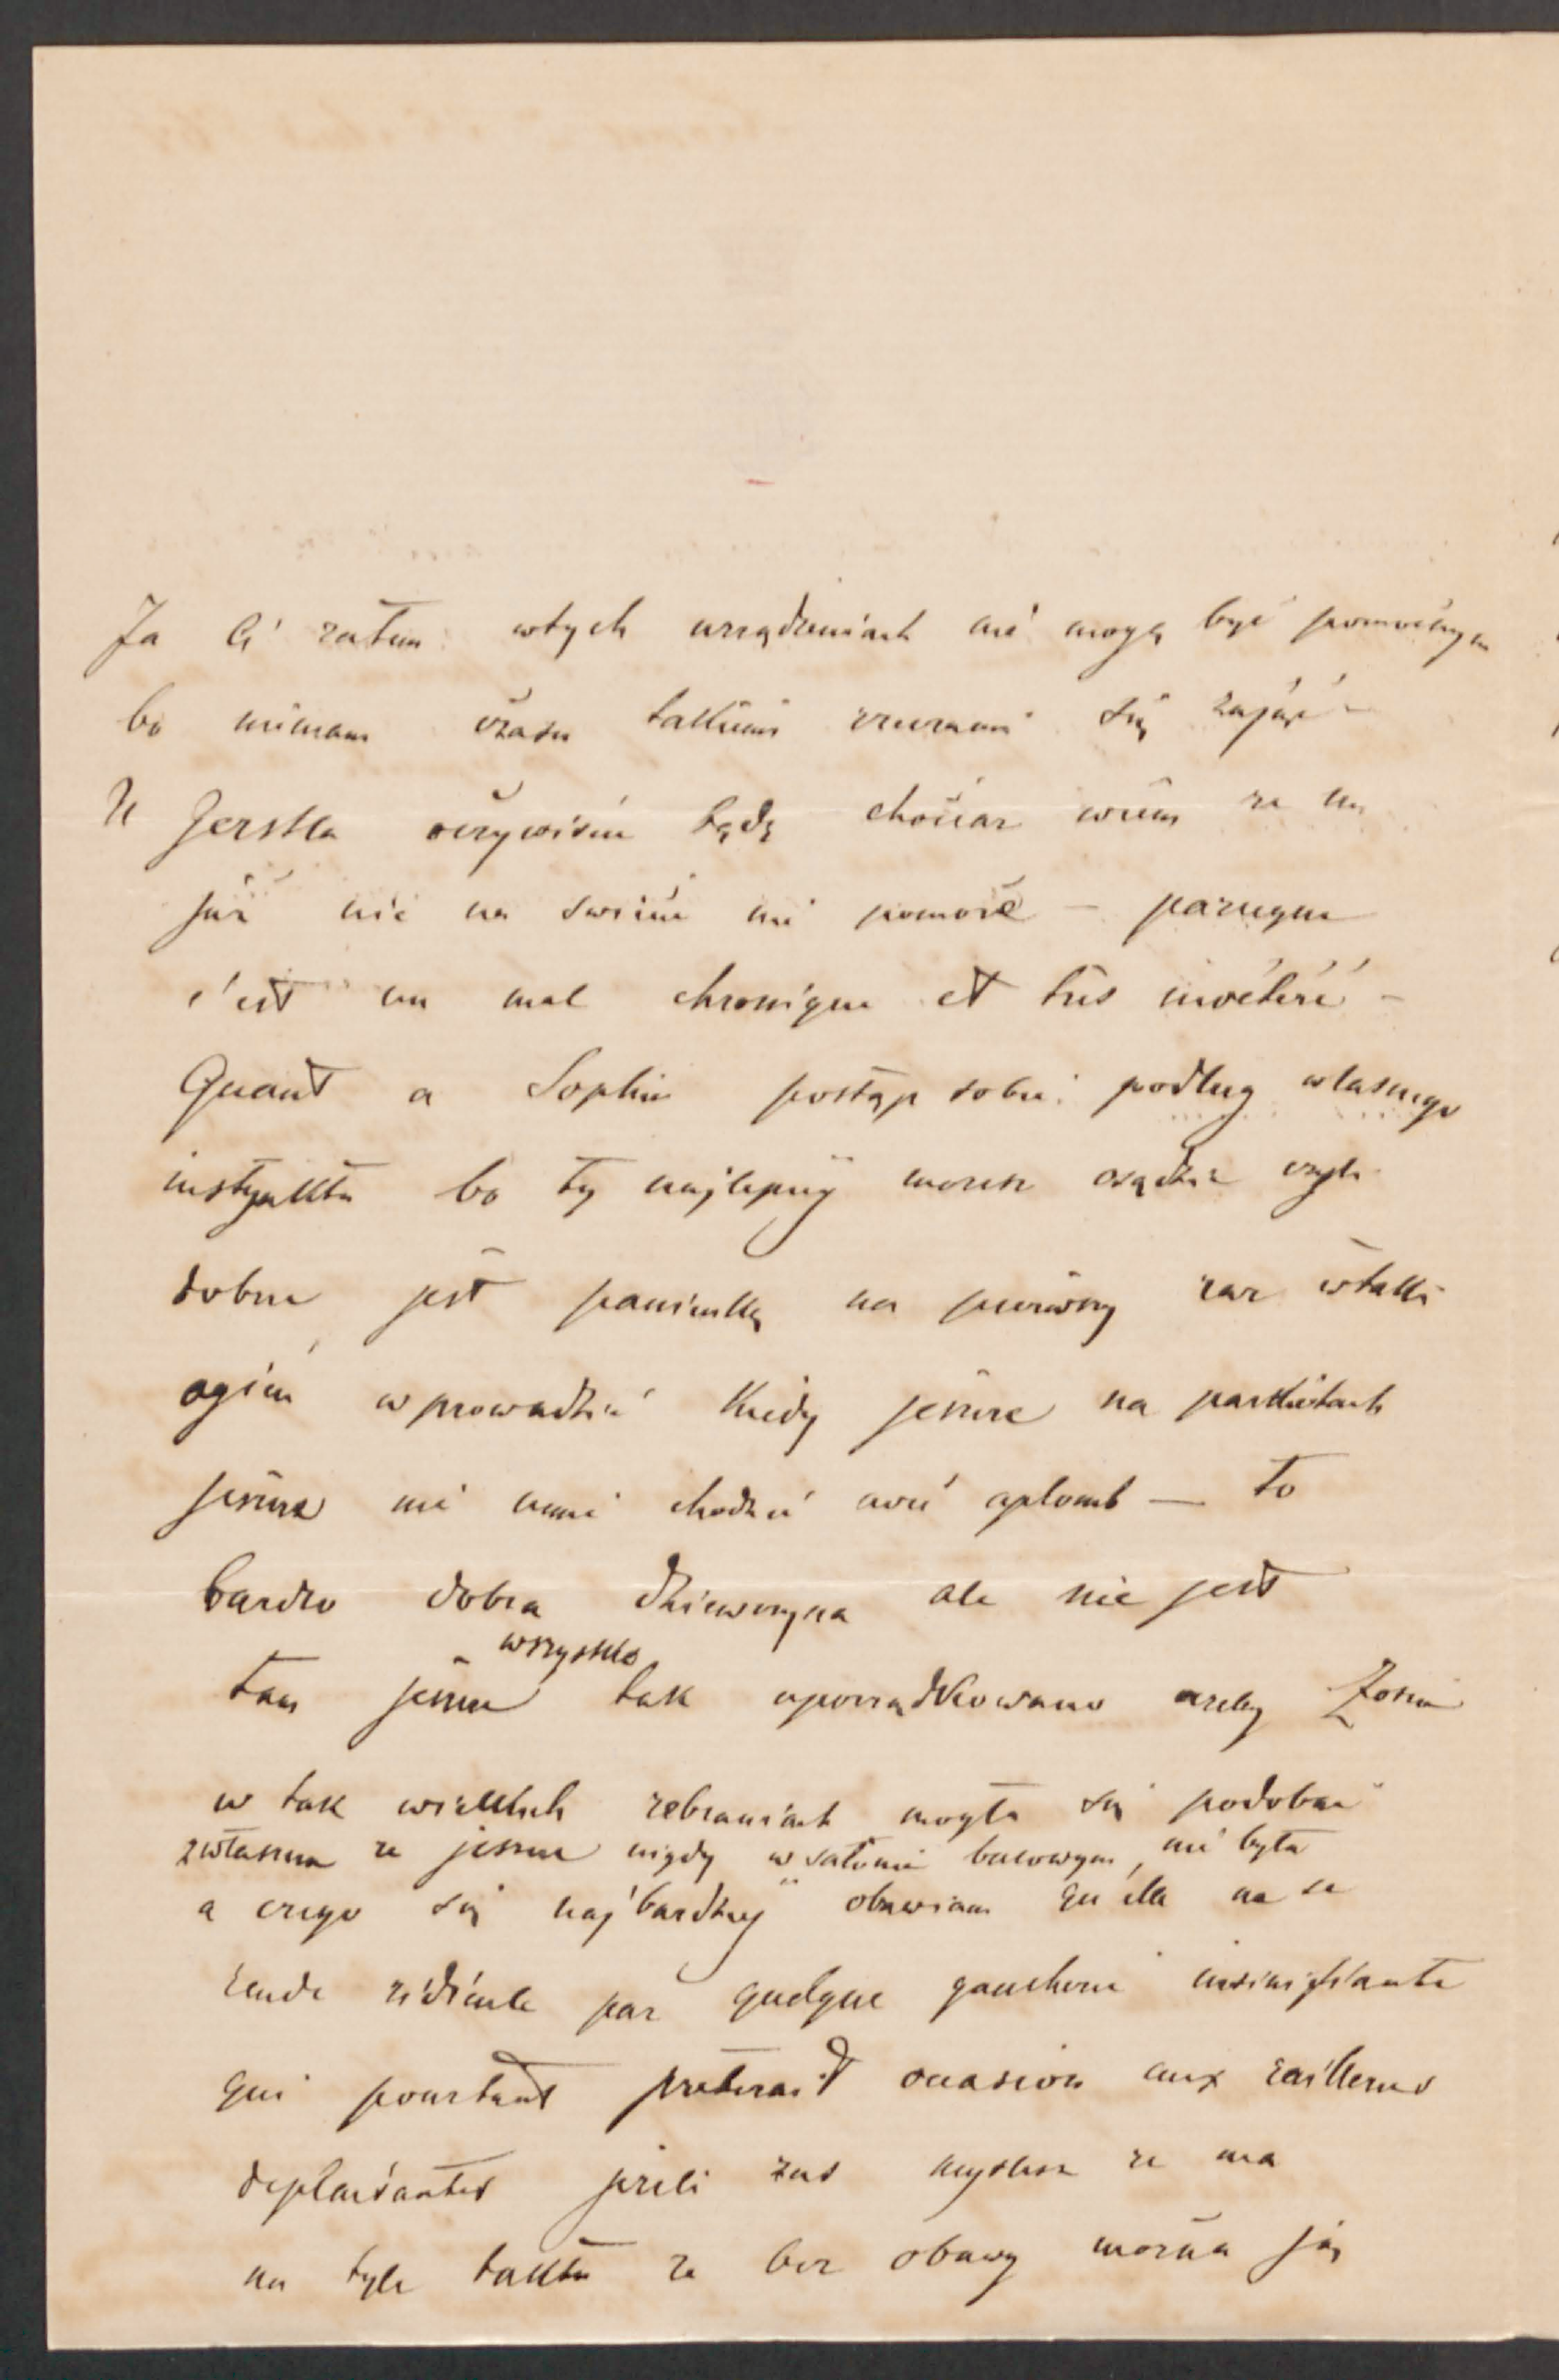 Ja Ci zatem w tych urządzeniach nie mogę być pomocnym
bo niemam czasu takiemi rzeczami się zająć –
U Jerska oczywiście będę chociaż wiem ze mu
już nic na swiecie nie pomoże – parceque
c'est un mal chronique et très invétéré –
Quant a Sophie postąp sobie podług własnego
instynktu bo ty najlepiej morzesz osądzić czyli
dobrze jest panienkę na pierwszy raz w taki
ogień wprowadzić kiedy jeszcze na parkietach
jeszcze nie umie chodzić avec aplomb – to
bardzo dobra dziewczyna ale nie jest
tam jeszcze wszystko tak uporządkowano azeby Zosia
w tak wielkich zebraniach mogła się podobać
zwłaszcza ze jeszcze nigdy w salonie balowym nie była
a czego się najbardziej obawiam qu'elle ne se
rende ridicule par quelque gaucherie insinifiante
qui pourtant preterait occasion aux railleries
deplaisantes jezeli zas myslisz ze ma
na tyle taktu ze bez obawy mozna ją